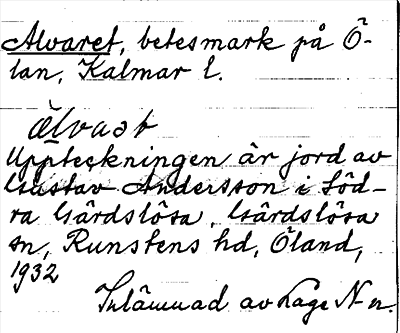 Alvaret, betesmark på Ö-
lan, Kalmar l.
Älvast
Uppteckningen är jord av
Gustav Andersson i Söd-
ra Gärdslösa, Gärdslösa
sn, Runstens hd, Öland,
1932
Inlämnad av Lage N-n.